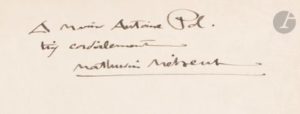 A Marie Antoine Pol.
très cordialement
Mathurin Méheut